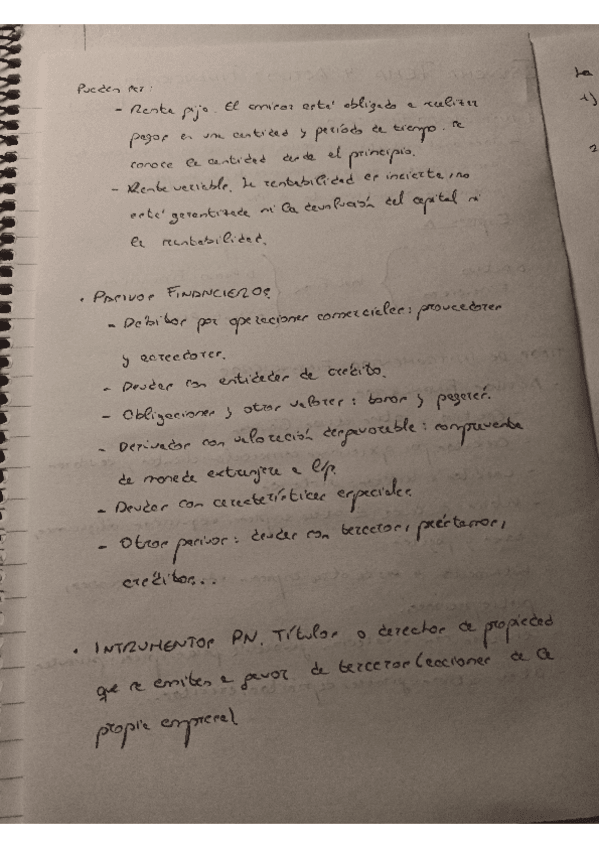 Pueden ser:
- Renta fija. El emisor está obligado a realizar
pagos en una cantidad y período de tiempo. Se
conoce la cantidad desde el principio.
- Renta variable. La rentabilidad es incierta, no
está garantizada ni la devolución del capital ni
la rentabilidad.
• PASIVOS FINANCIEROS
- Débitos por operaciones comerciales: proveedores
y acreedores.
- Deudas con entidades de crédito.
- Obligaciones y otros valores: bonos y pagarés.
- Derivados con valoración desfavorable: compraventa
de moneda extranjera a l/p.
- Deudas con características especiales.
- Otros pasivos: deudas con terceros, préstamos,
créditos...
• INTRUMENTOS PN. Títulos o derechos de propiedad
que se emiten a favor de terceros (acciones de la
propia empresa)
La
1)
2